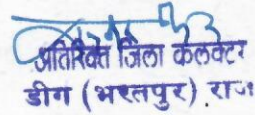 अतिरिक्त जिला कलेक्टर
डीग (भरतपुर) राज॰